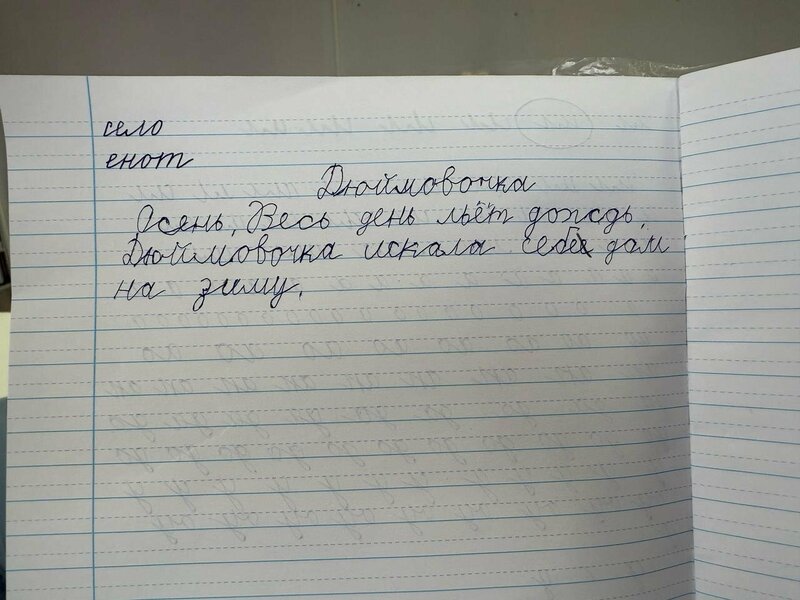 село
енот
Дюймовочка
Осень. Весь день льёт дождь.
Дюймовочка искала себе дом
на зиму.